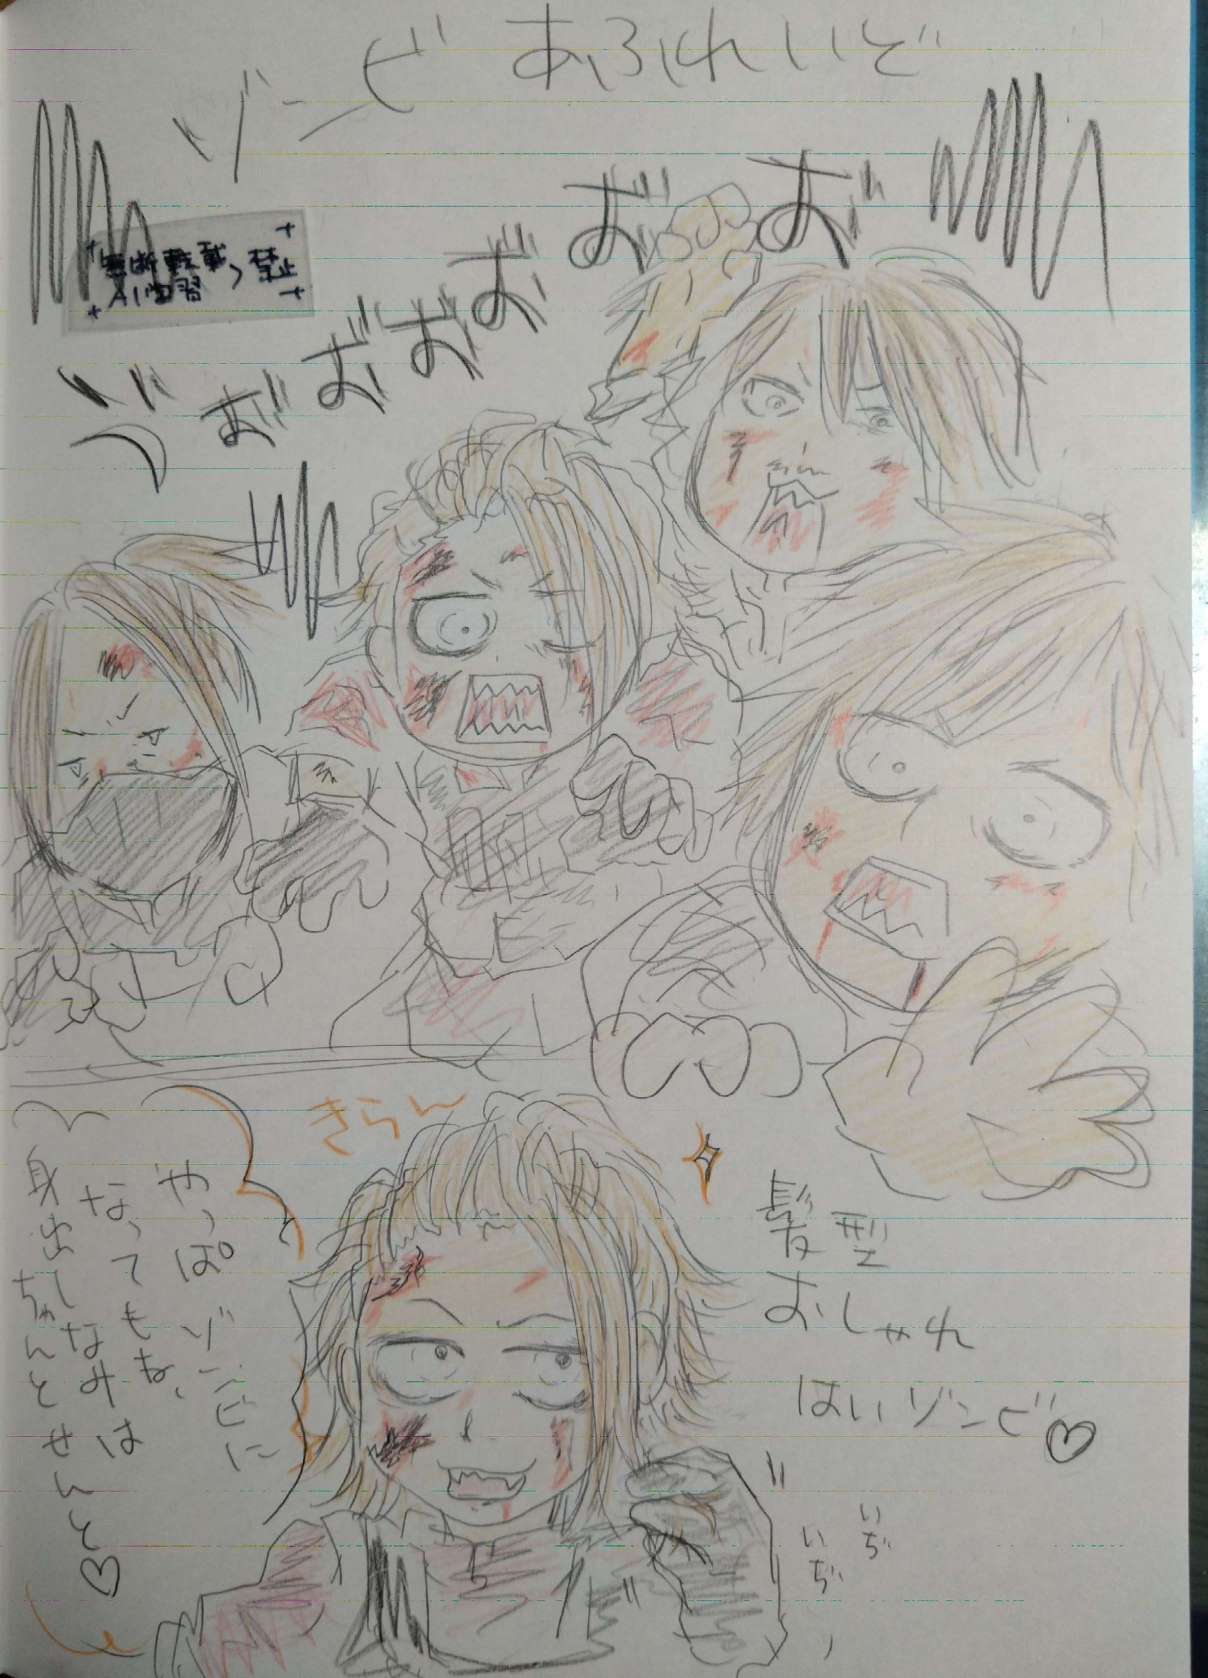 ゾンビ あふれいど
無断転載、禁止
AI学習
ヴお゛お゛お゛お゛お゛お゛
きらん
やっぱゾンビに
なってもね、
身出しなみは
ちゃんとせんと♡
髪型
おしゃれ
はいゾンビ♡
いぢ
いぢ